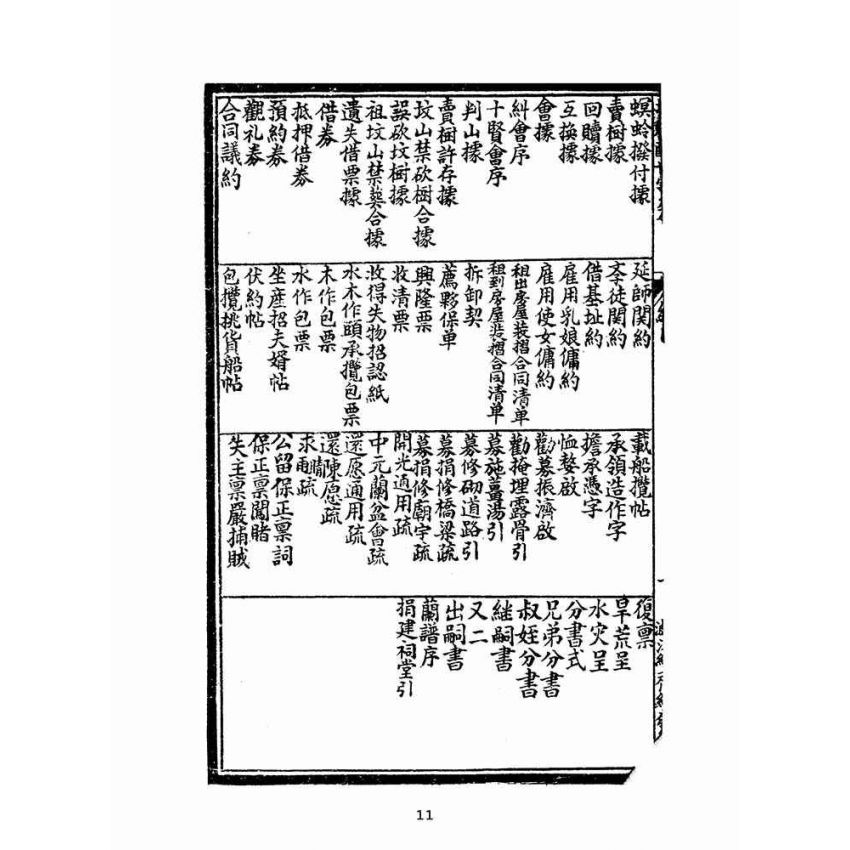 螟蛉撥付據
賣樹據
回贖據
互換據
會據
糾會序
十賢會序
判山據
賣樹許存據
坟山禁砍樹合據
誤砍坟樹據
祖坟山禁葬合據
遺失借票據
借券
抵押借券
預約券
觀礼券
合同議約
延師関約
李徒関約
借基址約
雇用乳娘傭約
雇用使女傭約
租出房屋裝摺合同清单
租到房屋裝摺合同清单
拆卸契
薦夥保单
興隆票
收清票
收得失物招認紙
水木作頭承攬包票
木作包票
水作包票
坐産招夫婿帖
伏約帖
包攬挑貨船帖
載船攬帖
承領造作字
擔承憑字
恤嫠啟
勸募振濟啟
勸掩埋露骨引
募施薑湯引
募修砌道路引
募捐修橋梁疏
募捐修廟宇疏
開光通用疏
中元蘭盆會疏
還愿通用疏
還陳愿疏
求雨疏
公留保正禀詞
保正禀闖賭
失主禀嚴捕賊
復禀
旱荒呈
水灾呈
分書式
兄弟分書
叔姪分書
継嗣書
又二
出嗣書
蘭譜序
捐建祠堂引
11